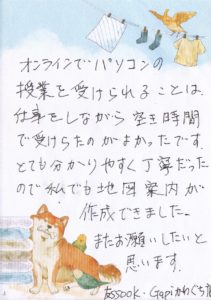 オンラインでパソコンの
授業を受けられることは、
仕事をしながら空き時間
で受けらたのがよかったです。
とても分かりやすく丁寧だった
ので私でも地図案内が
作成できました。
またお願いしたいと
思います。